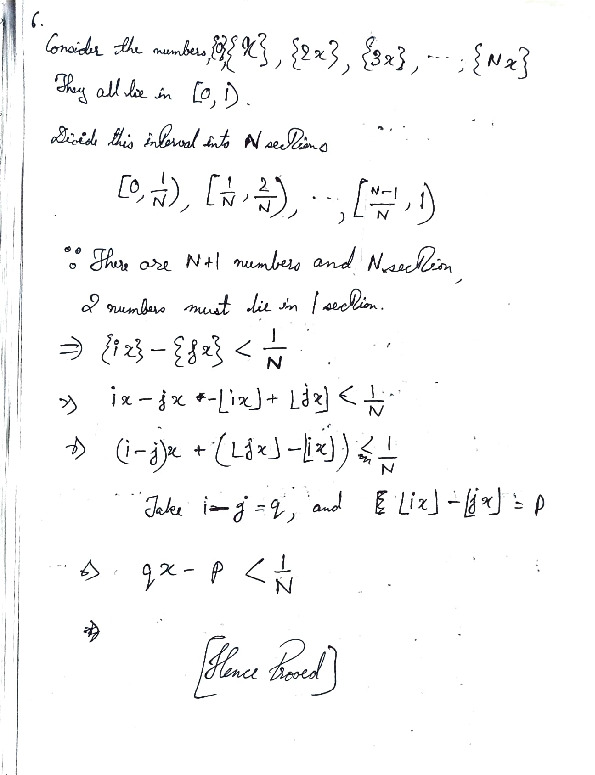 6.
Consider the numbers, {0}, {x}, {2x}, {3x}, ..., {Nx}
They all lie in [0, 1).
Divide this interval into N sections
[0, 1/N), [1/N, 2/N), ..., [N-1/N, 1)
∵ There are N+1 numbers and N section,
2 numbers must lie in 1 section.
⇒ {ix} - {jx} < 1/N
⇒ ix - jx - ⌊ix⌋ + ⌊jx⌋ < 1/N
⇒ (i-j)x + (⌊jx⌋ - ⌊ix⌋) < 1/N
Take i - j = q, and ⌊ix⌋ - ⌊jx⌋ = p
⇒ qx - p < 1/N
⇒
[Hence Proved]